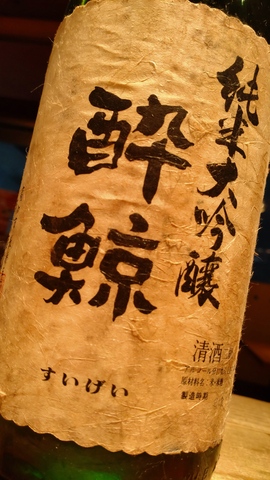 純米大吟醸
酔鯨
すいげい
清酒
原材料名
製造時期